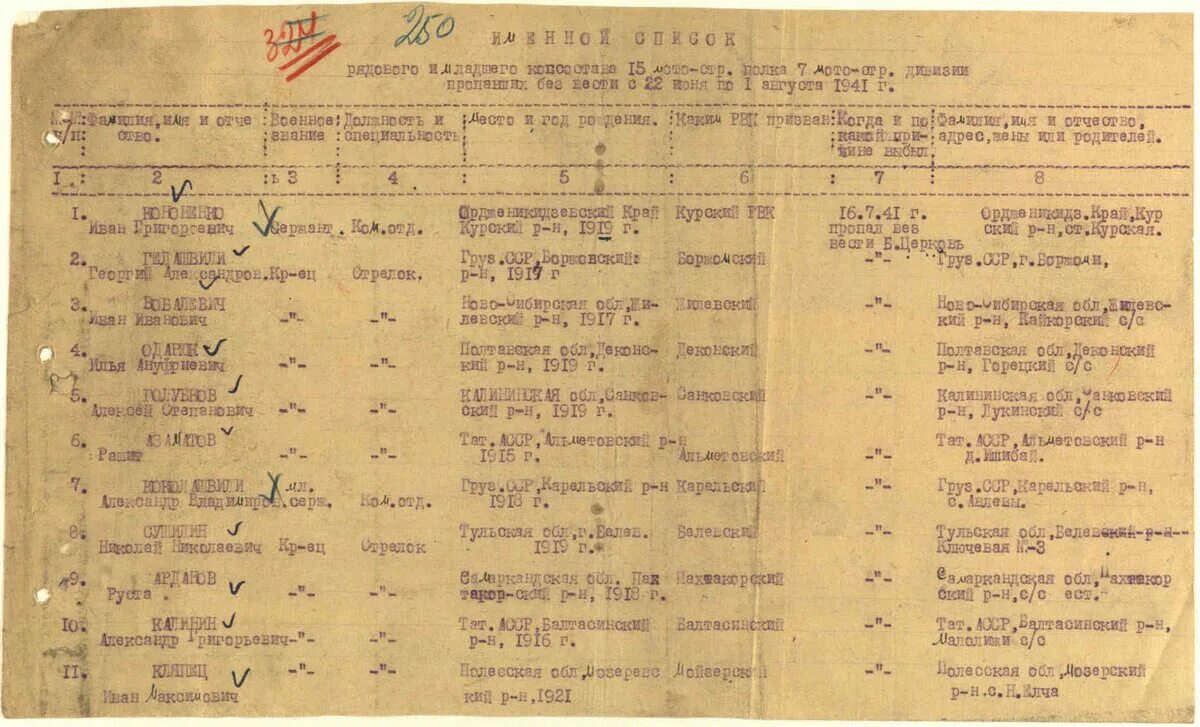 327 250
ИМЕННОЙ СПИСОК
рядового и младшего комсостава 15 мото-стр. полка 7 мото-стр. дивизии
пропавших без вести с 22 июня по 1 августа 1941 г.
№-№ Фамилия, имя и отче Военное Должность и место и год рождения. Каким РВК призван Когда и по Фамилия, имя и отчество,
п/п ство. звание специальность какой при- адрес, жены или родителей.
чине выбыл.
I 2 3 4 5 6 7 8
1. КОНОНЕНКО Ордженикидзевский Край Курский РВК 16.7.41 г. Ордженикидз. Край, Кур
Иван Григорьевич Сержант. Ком.отд. Курский р-н, 1919 г. пропал без ский р-н, ст. Курская.
вести Б.Церковь
2. ГЕЛАШВИЛИ Груз.ССР, Боржовский Боржомский -"- Груз.ССР, г. Боржоми,
Георгий Александров. Кр-ец Стрелок. р-н, 1917 г
3. ВОБАЛЕВИЧ Ново-Сибирская обл, Жи- Жилевский -"- Ново-Сибирская обл, Жилевс-
Иван Иванович -"- -"- левский р-н, 1917 г. кий р-н, Кайкорский с/с
4. ОДАРЮК Полтавская обл, Деконс- Деконский -"- Полтавская обл, Деконский
Илья Ануфриевич -"- -"- кий р-н, 1919 г. р-н, Горецкий с/с
5. ГОЛУБНОВ КАЛИНИНСКАЯ обл, Санков- Санковский -"- Калининская обл, Санковский
Алексей Степанович -"- -"- ский р-н, 1919 г. р-н, Лукинский с/с
6. АЗАМАТОВ Тат. АССР, Альметовский р-н -"- Тат. АССР, Альметовский р-н
Рашит -"- -"- 1915 г. Альметовский д. Ишибай.
7. КОКОЛАШВИЛИ мл. Груз.ССР, Карельский р-н Карельский -"- Груз.ССР, Карельский р-н,
Александр Владимиров. серж. Ком.отд. 1918 г. с. Авлевы.
8. СУШИЛИН Тульская обл, г. Белев. Белевский -"- Тульская обл, Белевский р-н--
Николай Николаевич Кр-ец Стрелок 1919 г. Ключевая №-3
9. АРДАНОВ Самаркандская обл. Пах Пахтакорский -"- Самаркандская обл, Пахтакор
Руста -"- -"- такор-ский р-н, 1918 г. ский р-н, с/с ест.
10. КАЛИНИН Тат. АССР, Балтасинский Балтасинский -"- Тат. АССР, Балтасинский р-н,
Александр Григорьевич -"- -"- р-н, 1916 г. Малолижи с/с
11. КЛЯПЕЦ -"- -"- Полесская обл, мозеревс Мойзерский -"- Полесская обл, мозерский
Иван Максимович кий р-н, 1921 р-н. с. Н. Елча